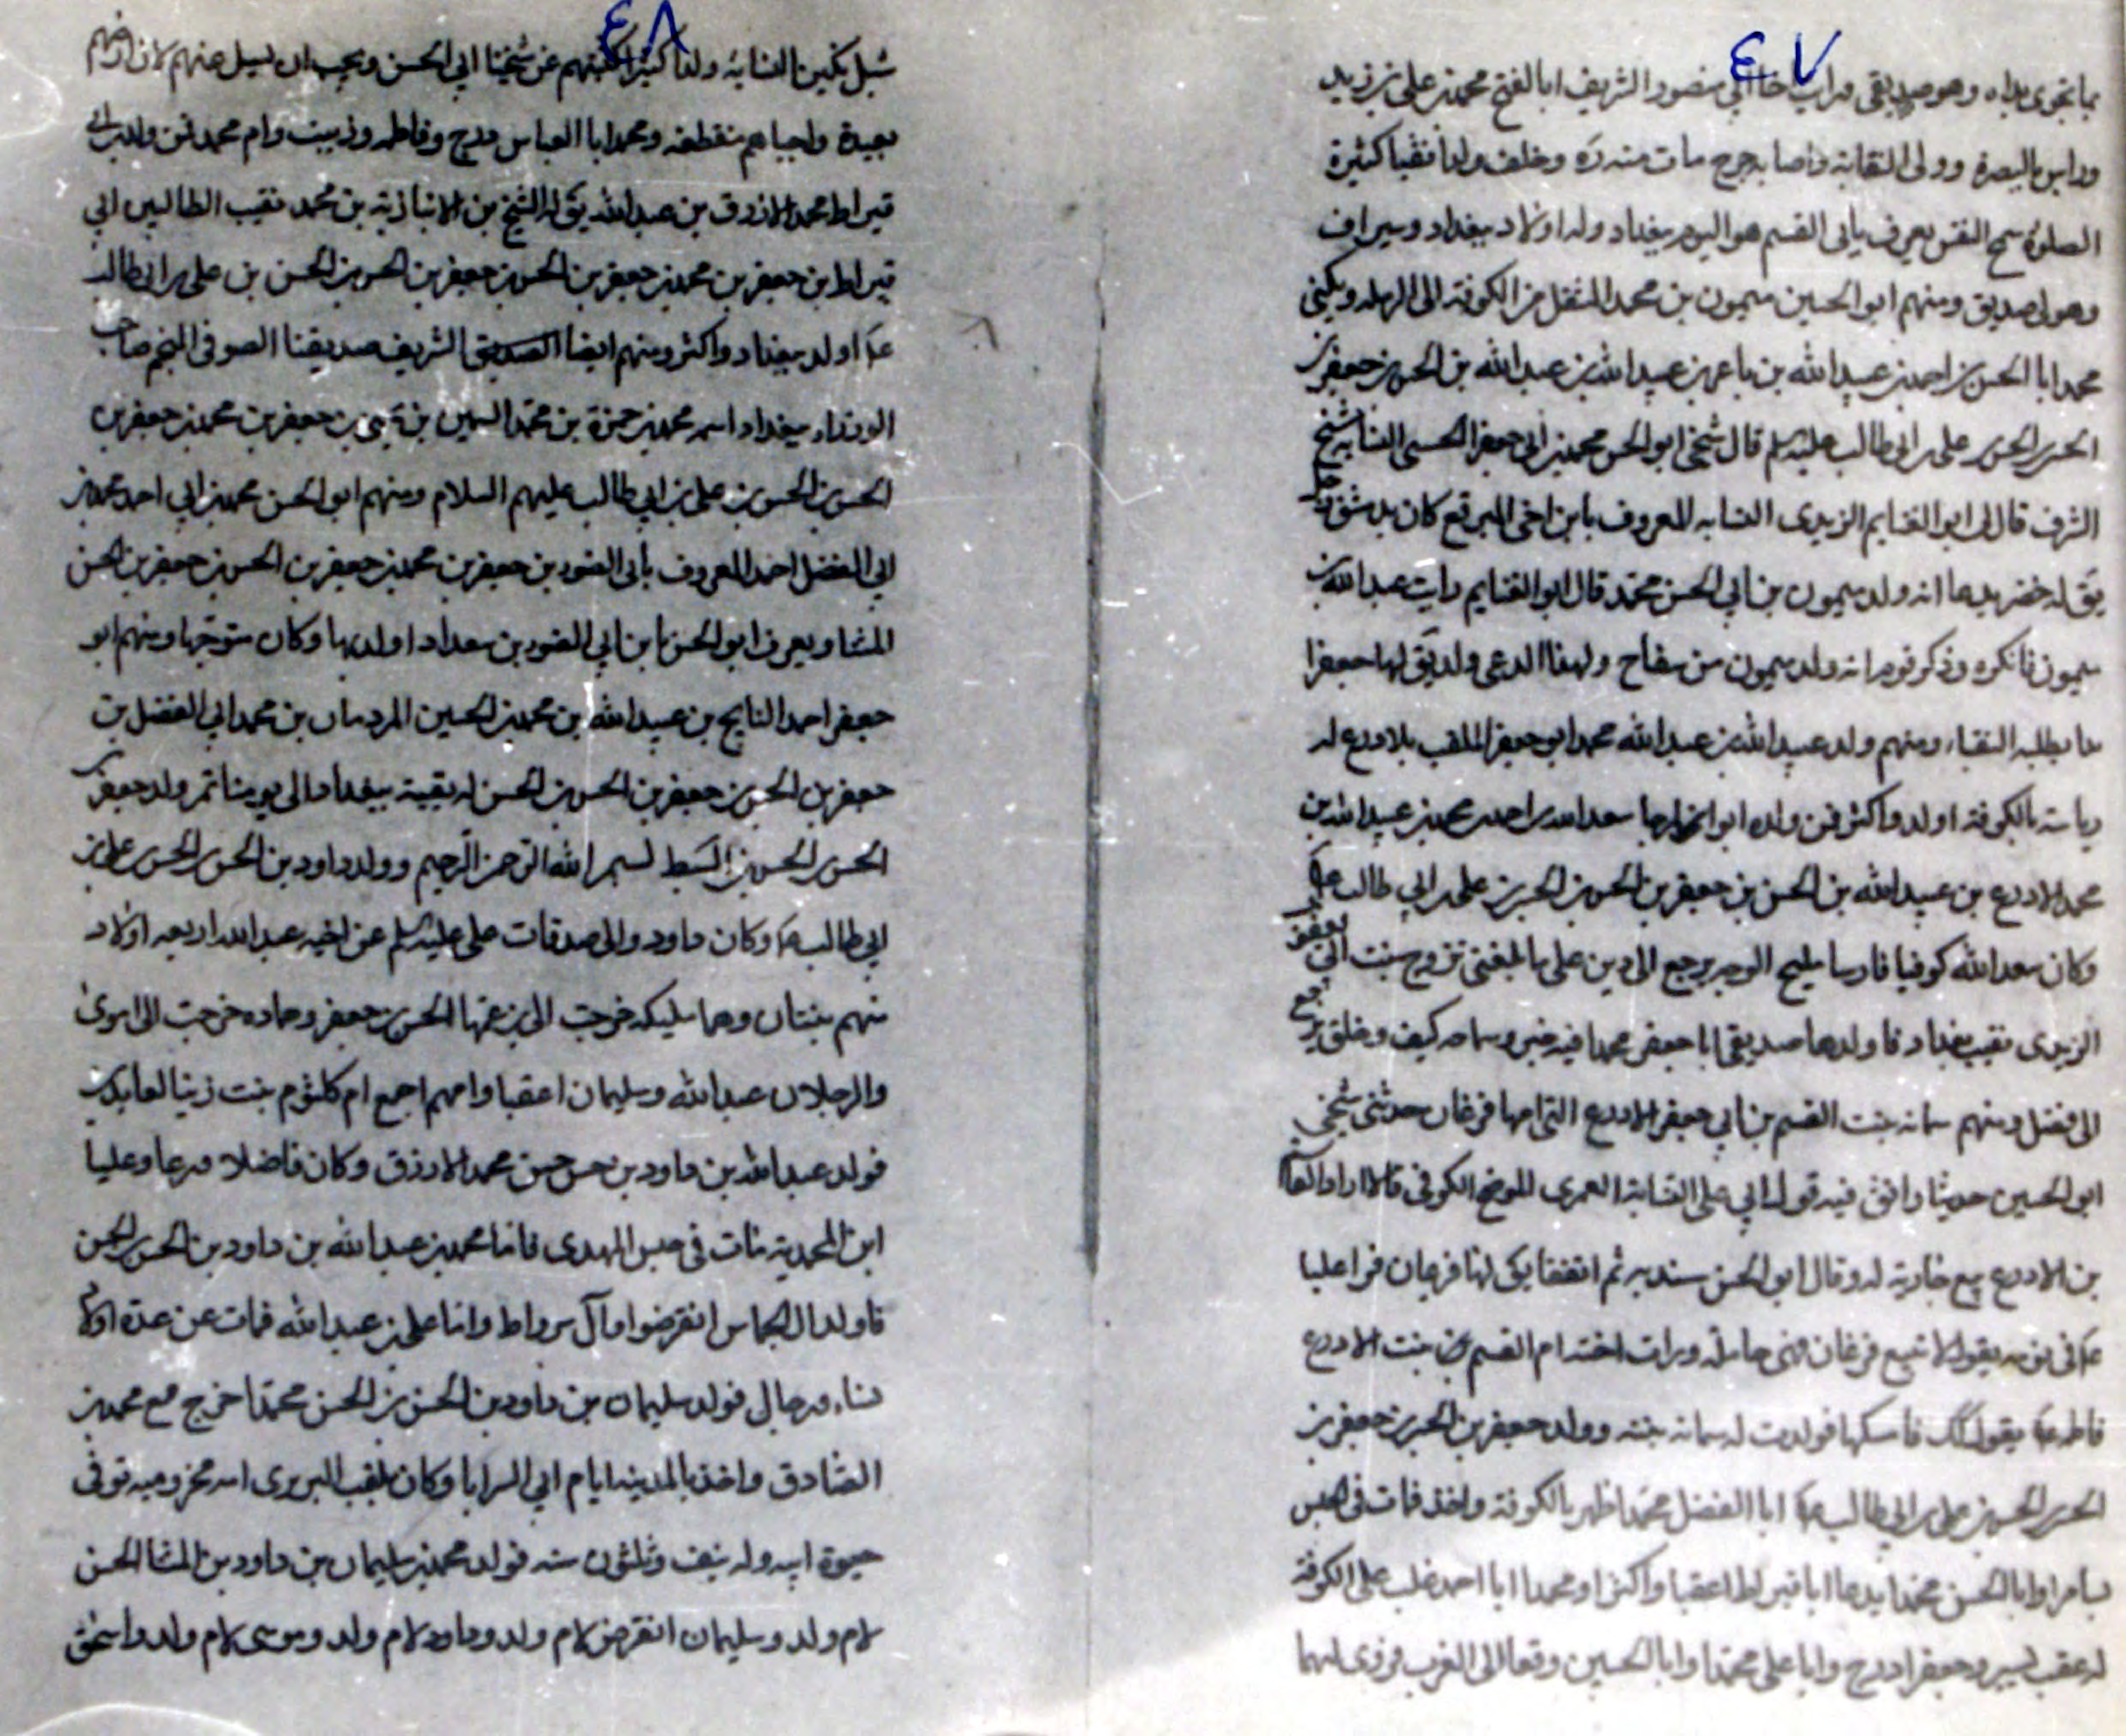 ٤٧
بما تجرى يداه وهو صديقى ابي منصور الشريف ابا الفتح محمد بن على بن زيد
وراس بالبصرة وولى النقابة واصابه جرح مات منه ره وخلف ولدا نقيبا كثيرة
الصلوة سمح النفس يعرف بابى القسم هو اليوم ببغداد وله اولاد ببغداد وسيراف
وهو لى صديق ومنهم ابو الحسين ميمون بن محمد المنتقل من الكوفة الى الرمله ويكنى
محمد ابا الحسن بن احمد بن عبيد الله بن باعمر بن عبيد الله بن عبد الله بن الحسن بن جعفر بن
الحسن بن الحسن بن على بن ابى طالب عليه السلم قال شيخى ابو الحسن محمد بن ابى جعفر الحسينى النسابه شيخ
الشرف قال لى ابو الغنايم الزيدى النسابه المعروف بابن اخى المبرقع كان بدمشق رجل
يق له خضر يدعا انه ولد ميمون بن ابى الحسن محمد قال ابو الغنايم رايت عبد الله بن
ميمون فانكره وذكر قوم انه ولد ميمون من سفاح ولهذا الدعى ولد يق لها جعفرا
ما يطلبه النقباء ومنهم ولد عبيد الله بن عبد الله محمد ابو جعفر الملقب بلادرع له
رياسة بالكوفة اولد واكثر فمن ولده ابو سعد الله بن احمد بن محمد بن عبيد الله بن
محمد الادرع بن عبيد الله بن الحسن بن جعفر بن الحسن بن الحسن بن على بن ابى طالب ع
وكان سعد الله كوفيا فارسا مليح الوجه يرجع الى دين على ما بلغنى تزوج بنت ابى
الزيدى نقيب بغداد فاولدها صديقى ابا جعفر محمدا فيه خير وسماحه كيف وخلق يرجع
الى فضل ومنهم سمانه بنت القسم بن ابى جعفر الادرع التى امها فرغان حدثنى شيخى
ابو الحسين حديثا وافق فيه قول ابى على النسابة العمرى الموضح الكوفى قالا اراد القاسم
بن الادرع بيع جارية له وقال ابو الحسن سنديه ثم اتفقا يق لها فرغان فراى عليا
ع فى نومه يقول لا تبيع فرغان فهى حامله ورات اخته ام القسم بنت الادرع
فاطمه ع يقول لك فامسكها فولدت له سمانه بنته وولد جعفر بن الحسن بن جعفر بن
الحسن بن الحسن بن على بن ابى طالب ع ابا الفضل محمدا ظهر بالكوفة واخذ فمات فى الحبس
بسامرا وابا الحسن محمدا يدعا ابا قيراط اعقبا واكثرا ومحمدا ابا احمد غلب على الكوفة
له عقب يسير وجعفرا درج وابا على محمدا وابا الحسين وقعا الى الغرب فروى لهما
٤٨
شبل بن تكين النسابه ولدا كثيرا كتبتهم عن شيخنا ابى الحسن ويجب ان يسيل عنهم لان ارضهم
بعيدة واحياهم منقطعه ومحمدا ابا العباس درج وفاطمه وزينب وام محمد فمن ولد ابى
قيراط محمد الازرق بن عبد الله يق له الشيخ بن الانبازية بن محمد نقيب الطالبيين ابى
قيراط بن جعفر بن محمد بن جعفر بن الحسن بن جعفر بن الحسن بن الحسن بن على بن ابى طالب
ع اولد ببغداد واكثر ومنهم ايضا الشريف صديقنا الصوفى المنجم صاحب
الوزراء ببغداد اسمه محمد بن حمزة بن محمد السمين بن يحيى بن جعفر بن محمد بن جعفر بن
الحسن بن الحسن بن على بن ابى طالب عليهم السلام ومنهم ابو الحسن محمد بن ابى احمد محمد بن
ابى الفضل احمد المعروف بابى الضوء بن جعفر بن محمد بن جعفر بن الحسن بن جعفر بن الحسن
المثنا ويعرف ابو الحسن بابن ابى الضوء بن بغداد اولد بها وكان متوجها ومنهم ابو
جعفر احمد النايح بن عبيد الله بن محمد بن الحسين بن محمد ابى الفضل بن
جعفر بن الحسن بن جعفر بن الحسن بن الحسن له بقية ببغداد الى يومنا تم ولد جعفر بن
الحسن بن الحسن بن السبط بسم الله الرحمن الرحيم وولد داود بن الحسن بن الحسن بن على بن
ابى طالب ع وكان داود والى صدقات على عليه السلم عن اخيه عبد الله اربعه اولاد
منهم بنتان وهما مليكه خرجت الى ابن عمها الحسن بن جعفر وحماده خرجت الى اموى
والرجلان عبد الله وسليمان اعقبا وامهم اجمع ام كلثوم بنت زين العابدين
فولد عبد الله بن داود بن حسن بن حسن محمد الازرق وكان فاضلا ورعا وعليا
ابن المحمدية مات فى حبس المهدى فاما محمد بن عبد الله بن داود بن الحسن بن الحسن
فاولد انقرضوا وآل واما على بن عبد الله فمات عن عدة اولاد
نساء ورجال فولد سليمان بن داود بن الحسن بن الحسن محمدا خرج مع محمد بن
الصادق واخذ بالمدينه ايام ابى السرايا وكان يلقب البربرى امه مخزوميه توفى
حيوة ابيه وله نيف وثلثون سنه فولد محمد بن سليمان بن داود بن المثنا الحسن
لام ولد وسليمان انقرض لام ولد وداود لام ولد وموسى لام ولد واسحق